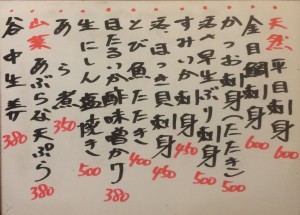 天然 平目刺身 600
金目鯛刺身 600
かつお刺身(たたき) 500
活〆早生ぶり刺身 500
すみいか刺身 450
活〆ほっき貝刺身 450
とび魚たたき 400
ほたるいか酢味噌かけ 380
生にしん塩焼き 500
あら煮 350
山菜 あぶらな天ぷら 380
谷中生姜 380